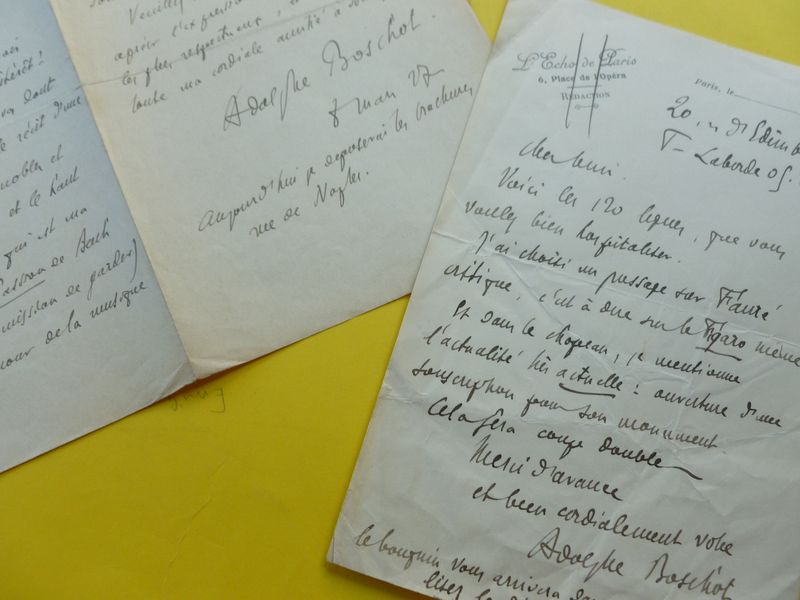 intérêt!
récit d'une
nobles et
et le haut
qui est ma
Passion de Bach
mission de garder)
de la musique
Veuillez
agréer l'expression
les plus respectueux, 
toute ma cordiale amitié à
Adolphe Boschot.
8 mars 27
Aujourd'hui je déposerai les brochures
rue de Naples.
L'Echo de Paris
6, Place de l'Opéra
RÉDACTION
Paris, le
20, r d'Edimb
T- Laborde 05.
Cher ami.
Voici les 120 lignes, que vous
voulez bien hospitaliser.
J'ai choisi un passage sur Fauré
critique, c'est à dire sur le Figaro même
Et dans le chapeau, je mentionne
l'actualité très actuelle : ouverture d'une
souscription pour son monument.
Cela fera coup double
Merci d'avance
et bien cordialement votre
Adolphe Boschot
le bouquin vous arrivera